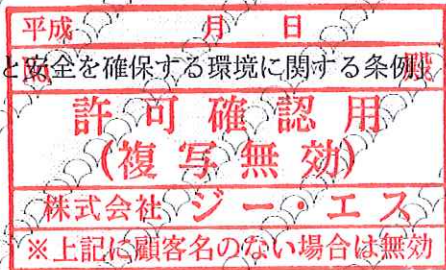 平成 月 日
と安全を確保する環境に関する条例
殿
許可確認用
(複写無効)
株式会社 ジー・エス
※上記に顧客名のない場合は無効